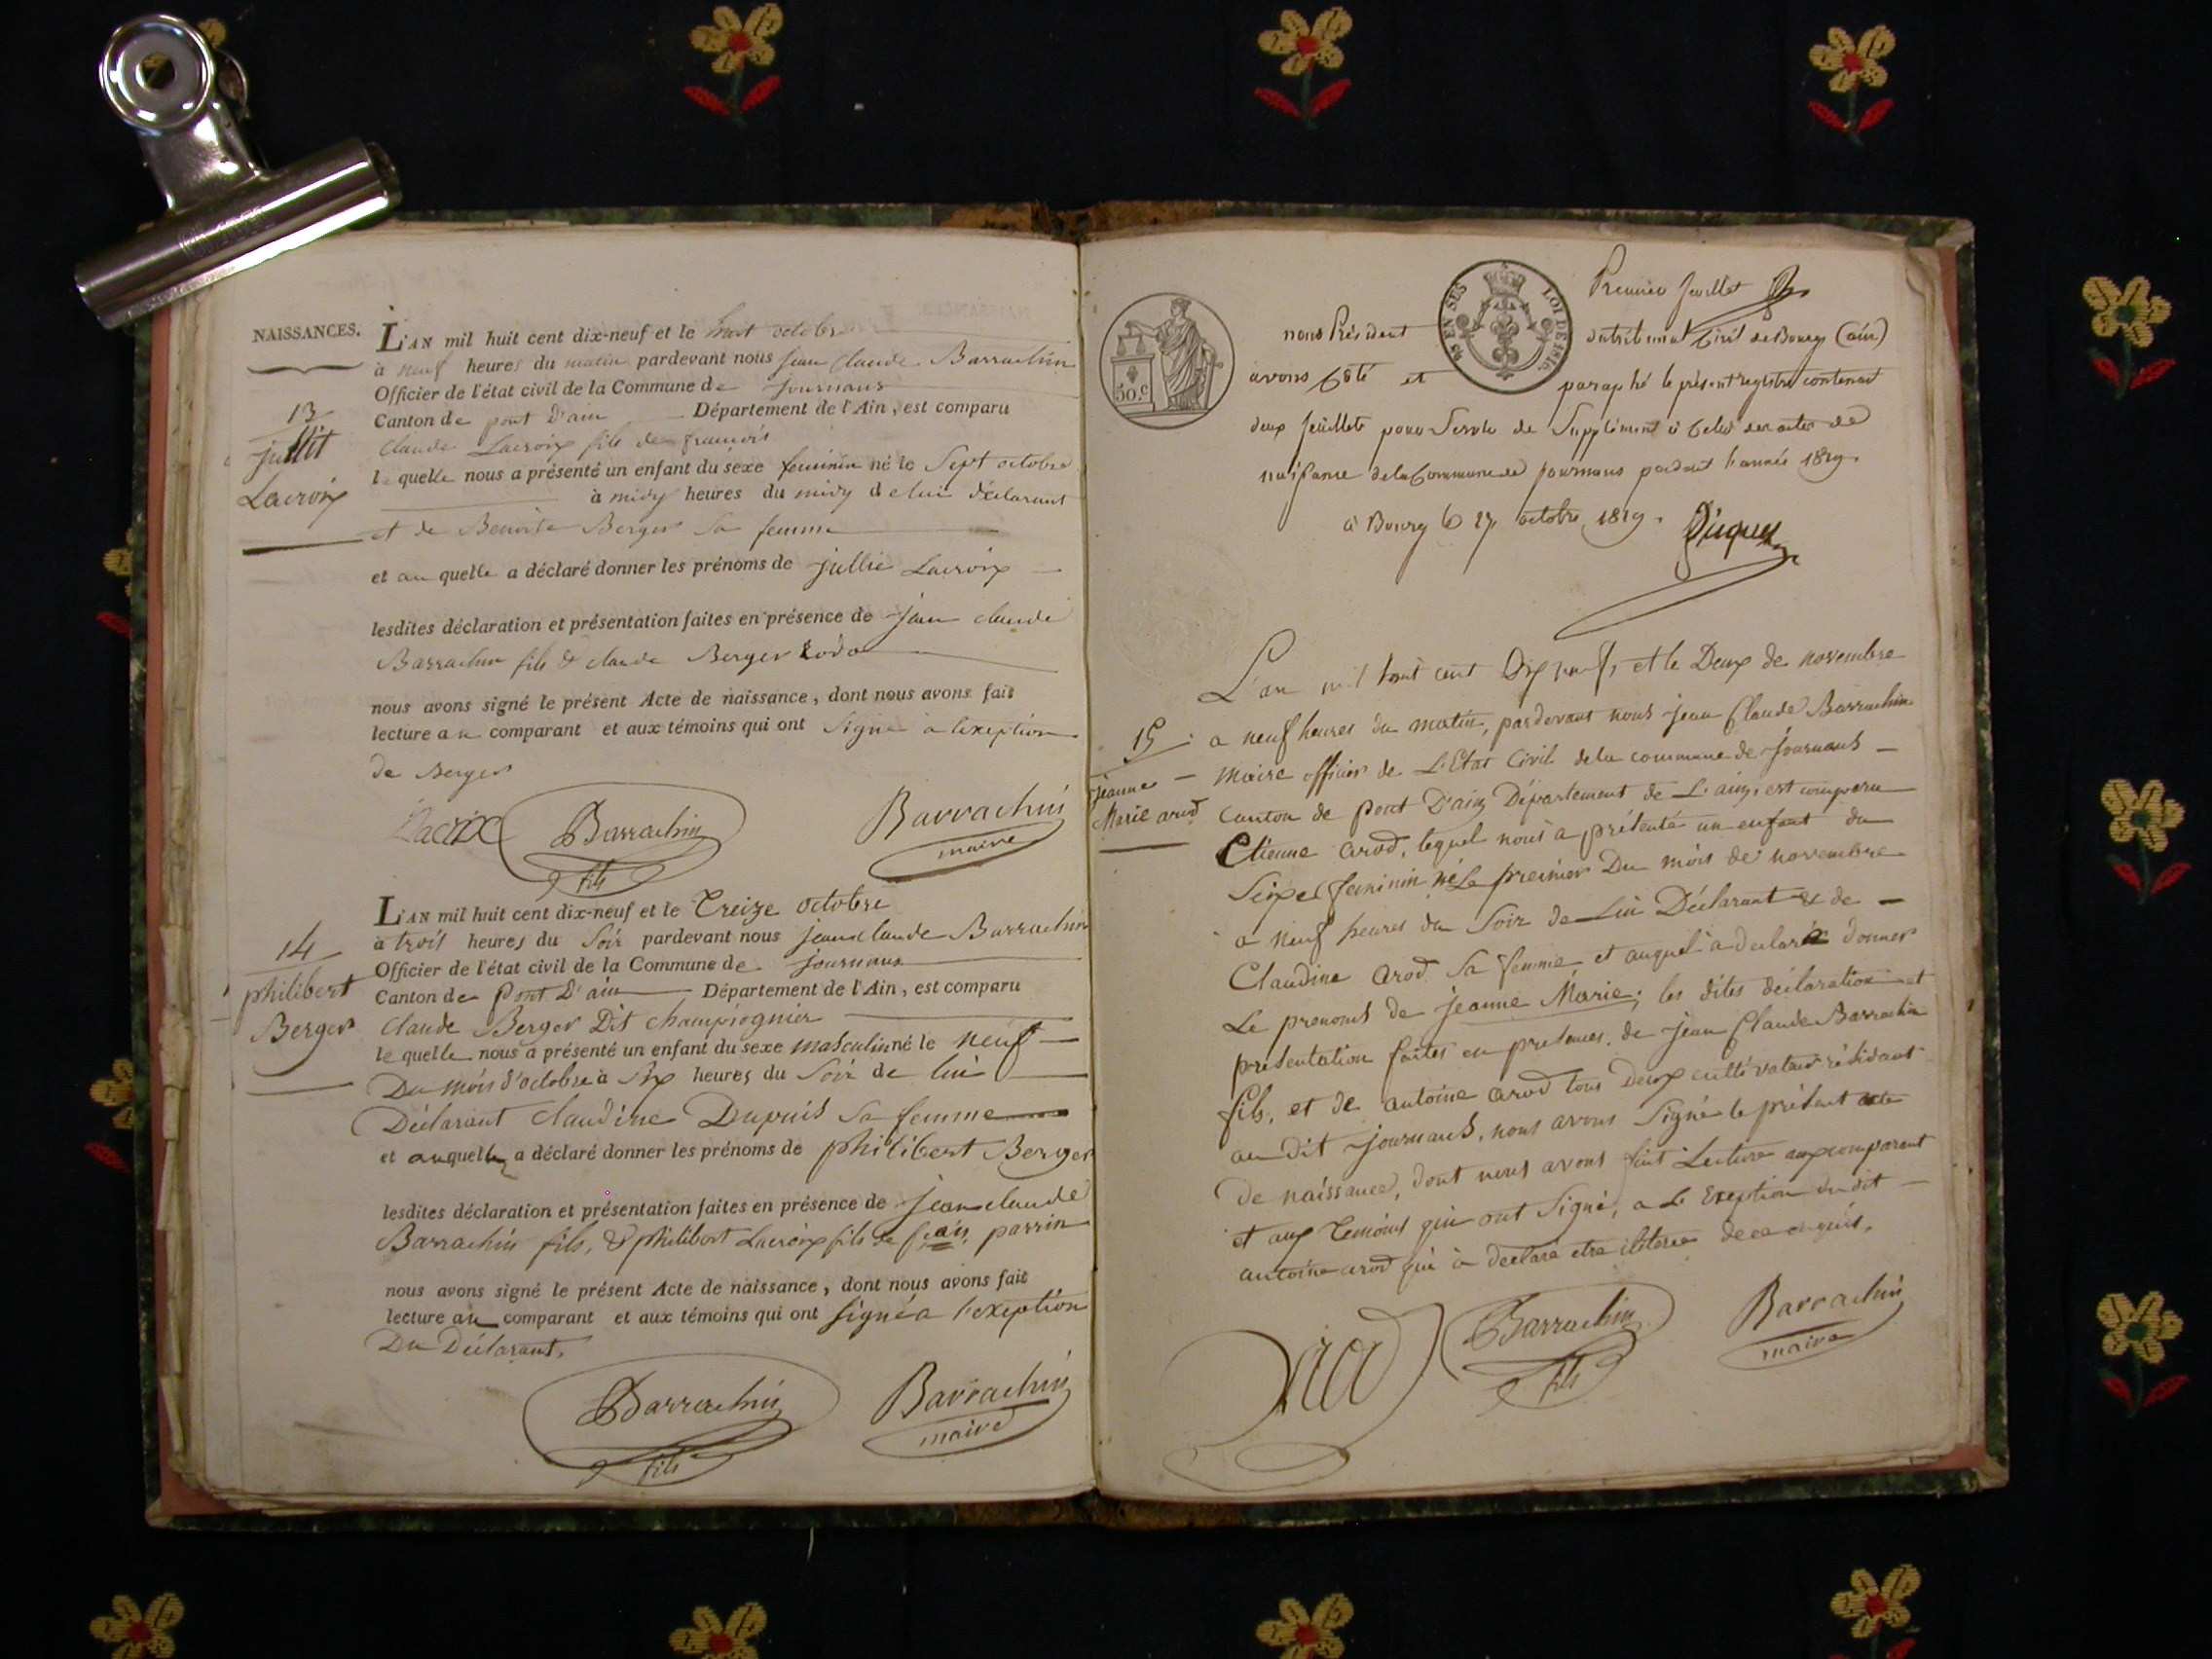 NAISSANCES.
L'AN mil huit cent dix-neuf et le huit octobre
à neuf heures du matin pardevant nous jean Claude Barrachin
Officier de l'état civil de la Commune de journans
Canton de pont D'ain Département de l'Ain, est comparu
Claude Lacroix fils de francois
le quelle nous a présenté un enfant du sexe feminin né le Sept octobre
à midy heures du midy de lui déclarant
et de Benoite Berger sa femme
et au quelle a déclaré donner les prénoms de jullie Lacroix
lesdites déclaration et présentation faites en présence de jean claude
Barrachin fils & claude Berger
nous avons signé le présent Acte de naissance, dont nous avons fait
lecture au comparant et aux témoins qui ont signé a lexeption
de Berger
13
jullit
Lacroix
Lacrix Barrachin fils Barrachin maire
L'AN mil huit cent dix-neuf et le Treize octobre
à trois heures du Soir pardevant nous jean claude Barrachin
Officier de l'état civil de la Commune de journans
Canton de Pont D'ain Département de l'Ain, est comparu
Claude Berger Dit champiognier
le quelle nous a présenté un enfant du sexe masculin né le neuf
Du mois d'octobre à six heures du Soir de lui
Déclarant claudine Dupuis sa femme
et auquelle a déclaré donner les prénoms de philibert Berger
lesdites déclaration et présentation faites en présence de jean claude
Barrachin fils, & philibert Lacroix fils de parrin
nous avons signé le présent Acte de naissance, dont nous avons fait
lecture au comparant et aux témoins qui ont signé a l'exeption
Du Déclarant.
14
philibert
Berger
Barrachin fils Barrachin maire
Premier feuillet
50.c
LOI DE 1816
nous Président du tribunal Civil de Bourg (ain)
avons Coté et paraphé le présent registre contenant
deux feuillets pour Servir de Supplément à Celui des actes de
naissance de la Commune de journans pendant l'année 1819.
à Bourg le 27 octobre 1819.
L'an mil huit cent Dix neuf, et le Deux de novembre
a neuf heures du matin, pardevant nous jean Claude Barrachin
Maire officier de L'Etat Civil de la commune de Journans
Canton de Pont D'ain Département de L'ain, est comparu
Etienne arod, lequel nous a présenté un enfant du
Sexe feminin né Le premier Du mois de novembre
a neuf heures du Soir de Lui Déclarant & de
Claudine arod sa femme et auquel a declaré donner
Le prenoms de jeanne Marie; les dites déclaration et
présentation faites en presences de jean Claude Barrachin
fils, et de antoine arod tous Deux cultivateur résidant
au dit journans, nous avons Signé le présent acte
De naissance, dont nous avons fait Lecture aux comparant
et aux temoins qui ont Signé, a L'Exeption du dit
antoine arod qui à déclaré etre iliteré de ce enquis.
15
jeanne
Marie arod
arod Barrachin fils Barrachin maire